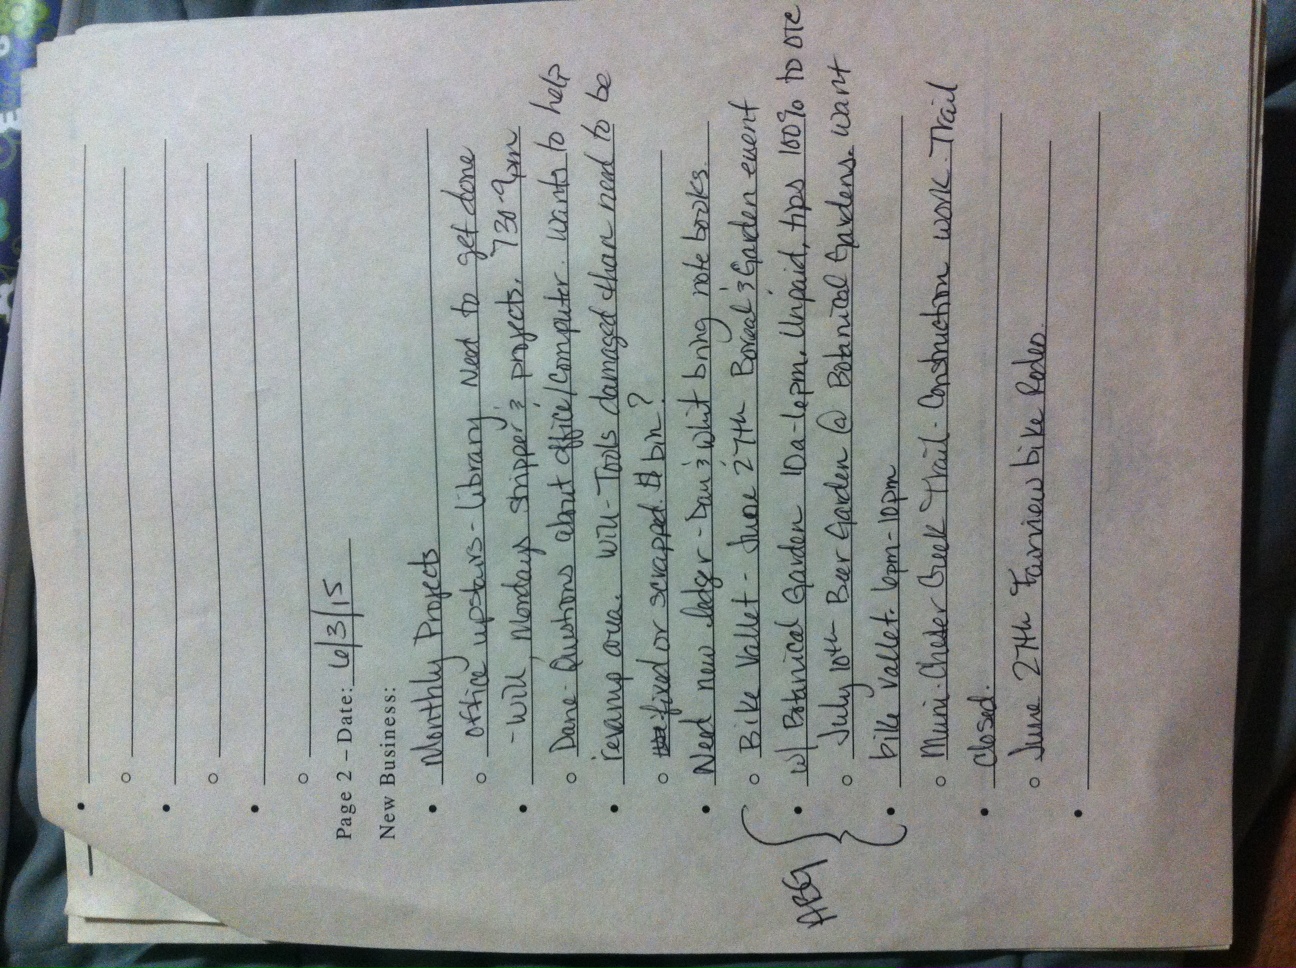 Page 2 – Date: 6/3/15
New Business:
Monthly Projects
office upstairs - library. Need to get done
- Will, Mondays stripper & projects. 730-9pm
Dane - Questions about office/computer. Wants to help
revamp area. Will - Tools damaged than need to be
fixed or scrapped. $1 bin?
Need new ledger - Dan & Whit bring note books.
Bike Vallet - June 27th Boreal & Garden event
w/ Botanical Garden 10a-6pm. Unpaid, tips 100% to OTC
July 10th - Beer Garden @ Botanical Gardens. Want
bike vallet. 6pm-10pm
ABG
Muni - Chester Creek Trail - Construction work. Trail
closed.
June 27th Fairview bike Rodeo.